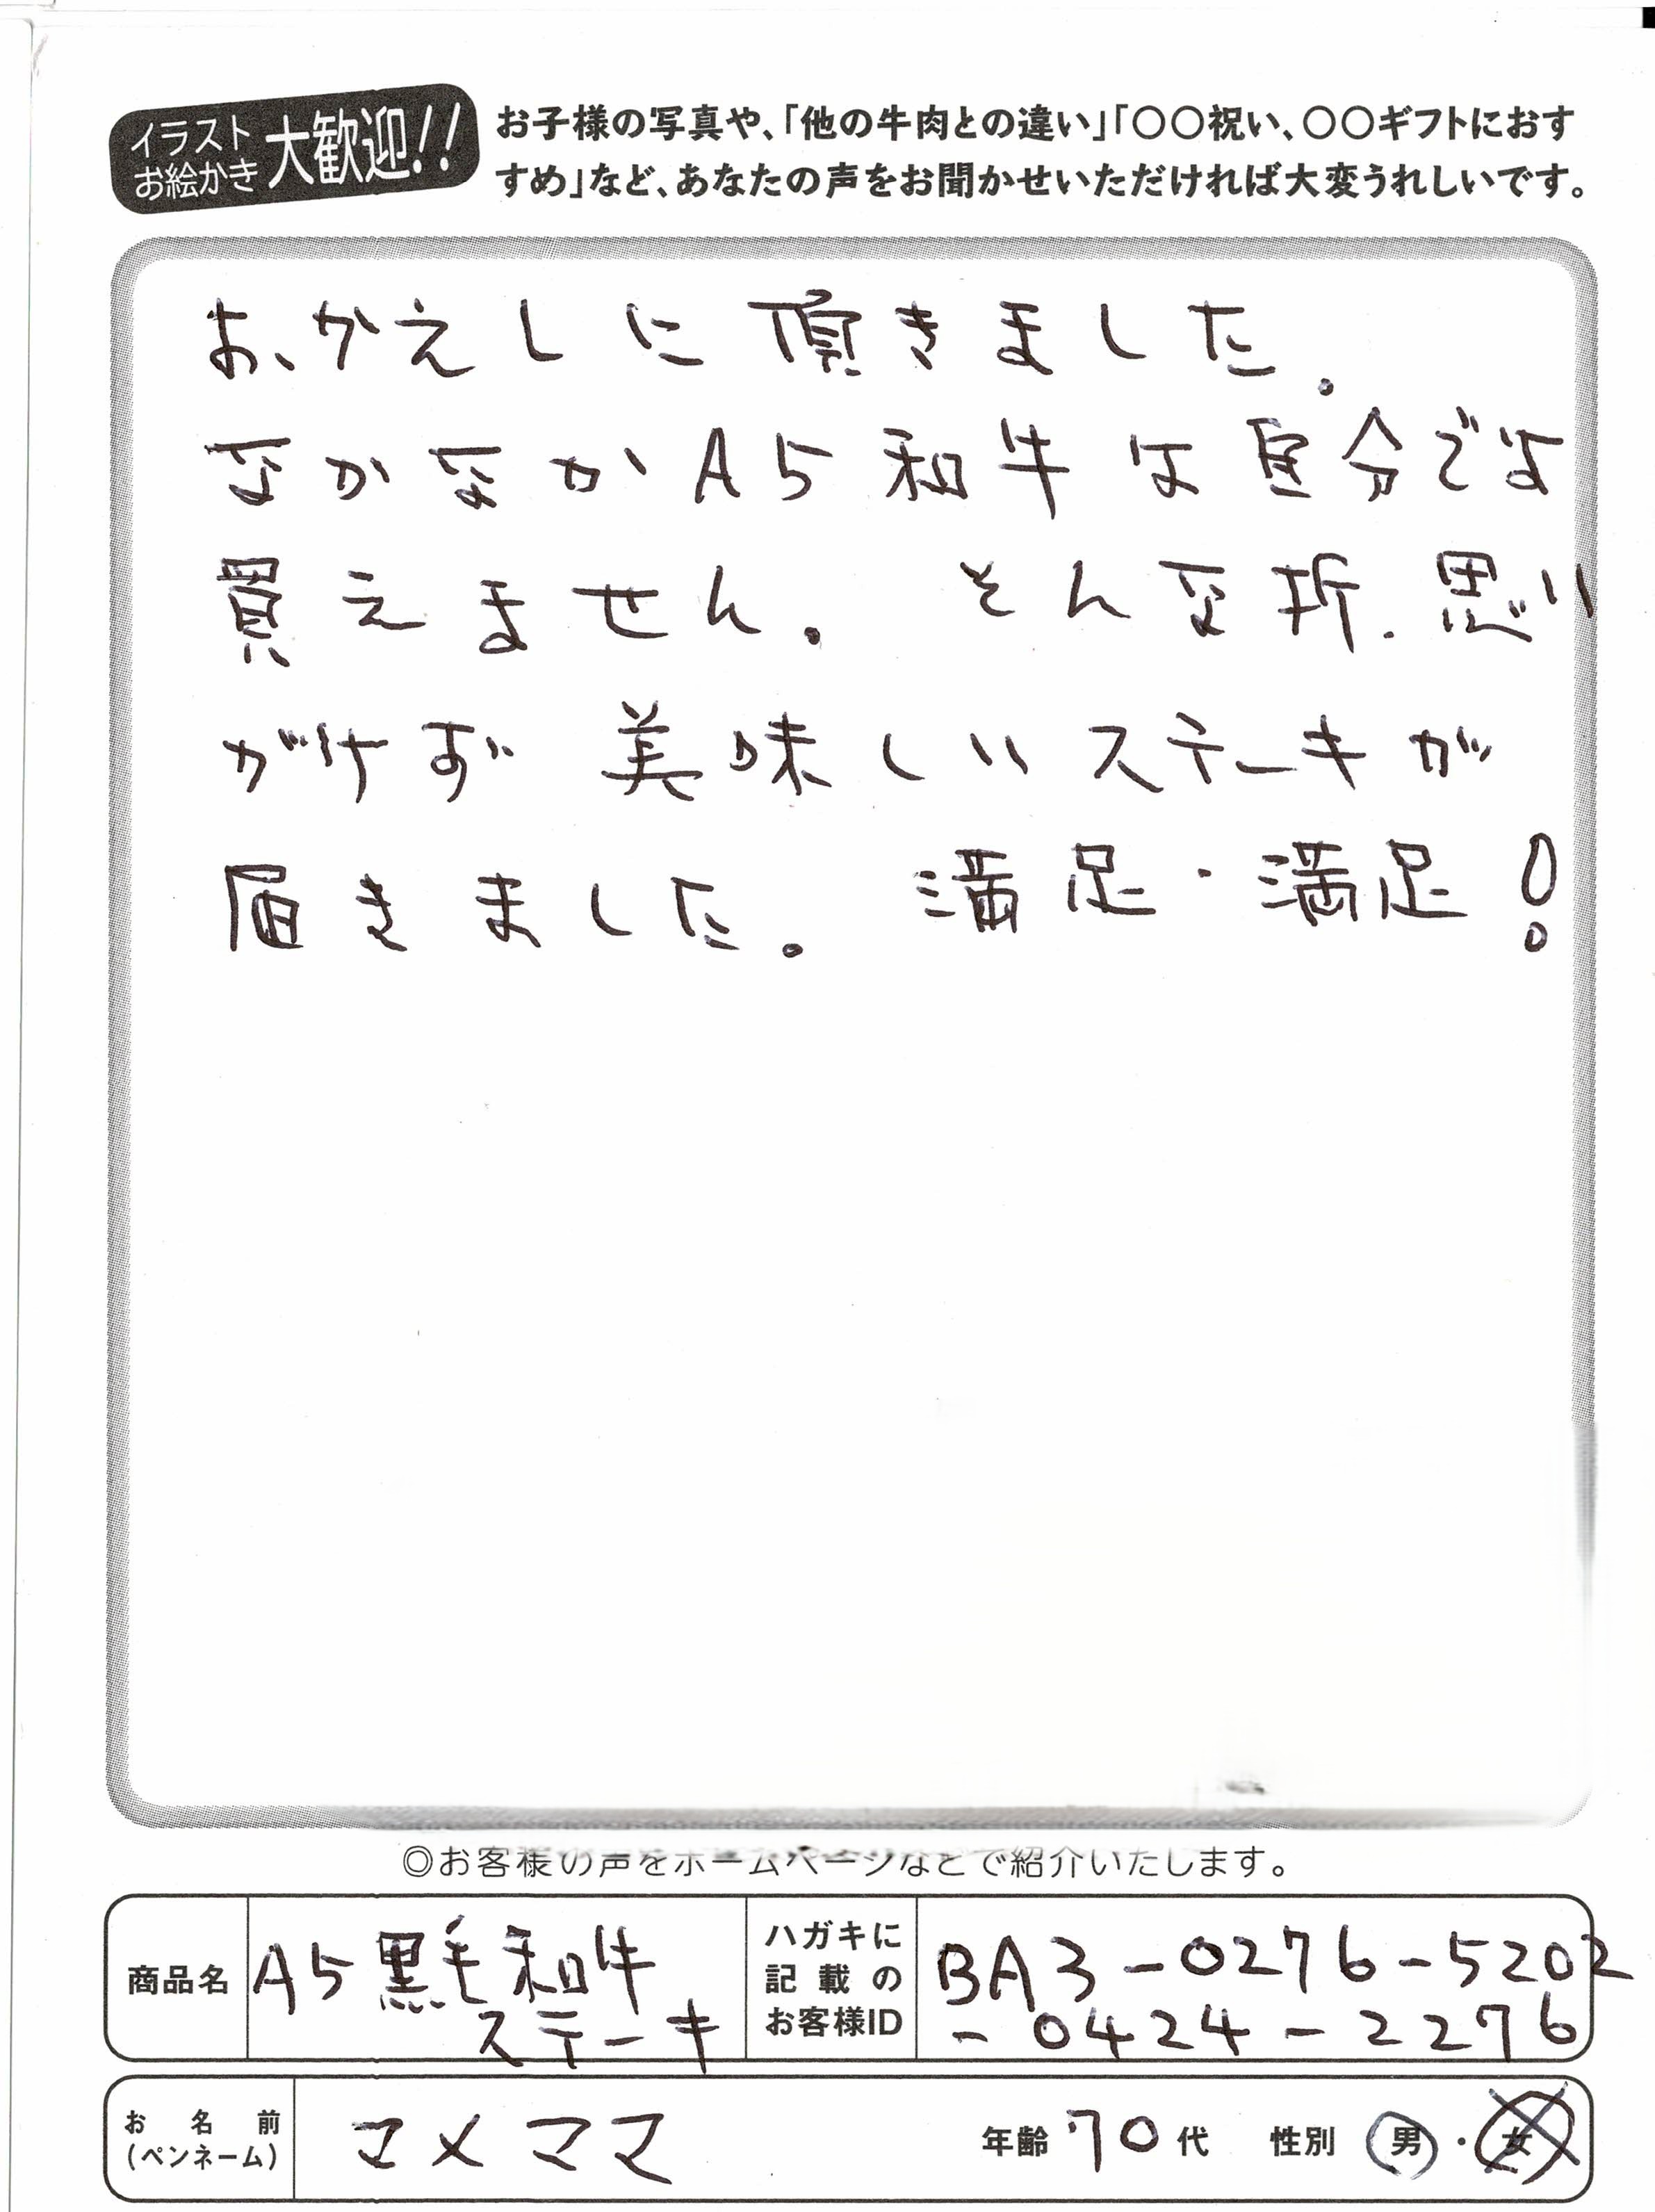 イラスト
お絵かき
大歓迎!!
お子様の写真や、「他の牛肉との違い」「〇〇祝い、〇〇ギフトにおす
すめ」など、あなたの声をお聞かせいただければ大変うれしいです。
おかえしに頂きました。
なかなかA5和牛は自分では
買えません。 そんな折、思い
がけず 美味しいステーキが
届きました。 満足・満足!
◎お客様の声をホームページなどで紹介いたします。
商品名
A5黒毛和牛
ステーキ
ハガキに
記載の
お客様ID
BA3-0276-5202
-0424-2276
お名前
(ペンネーム)
マメママ
年齢 70代 性別 男・女